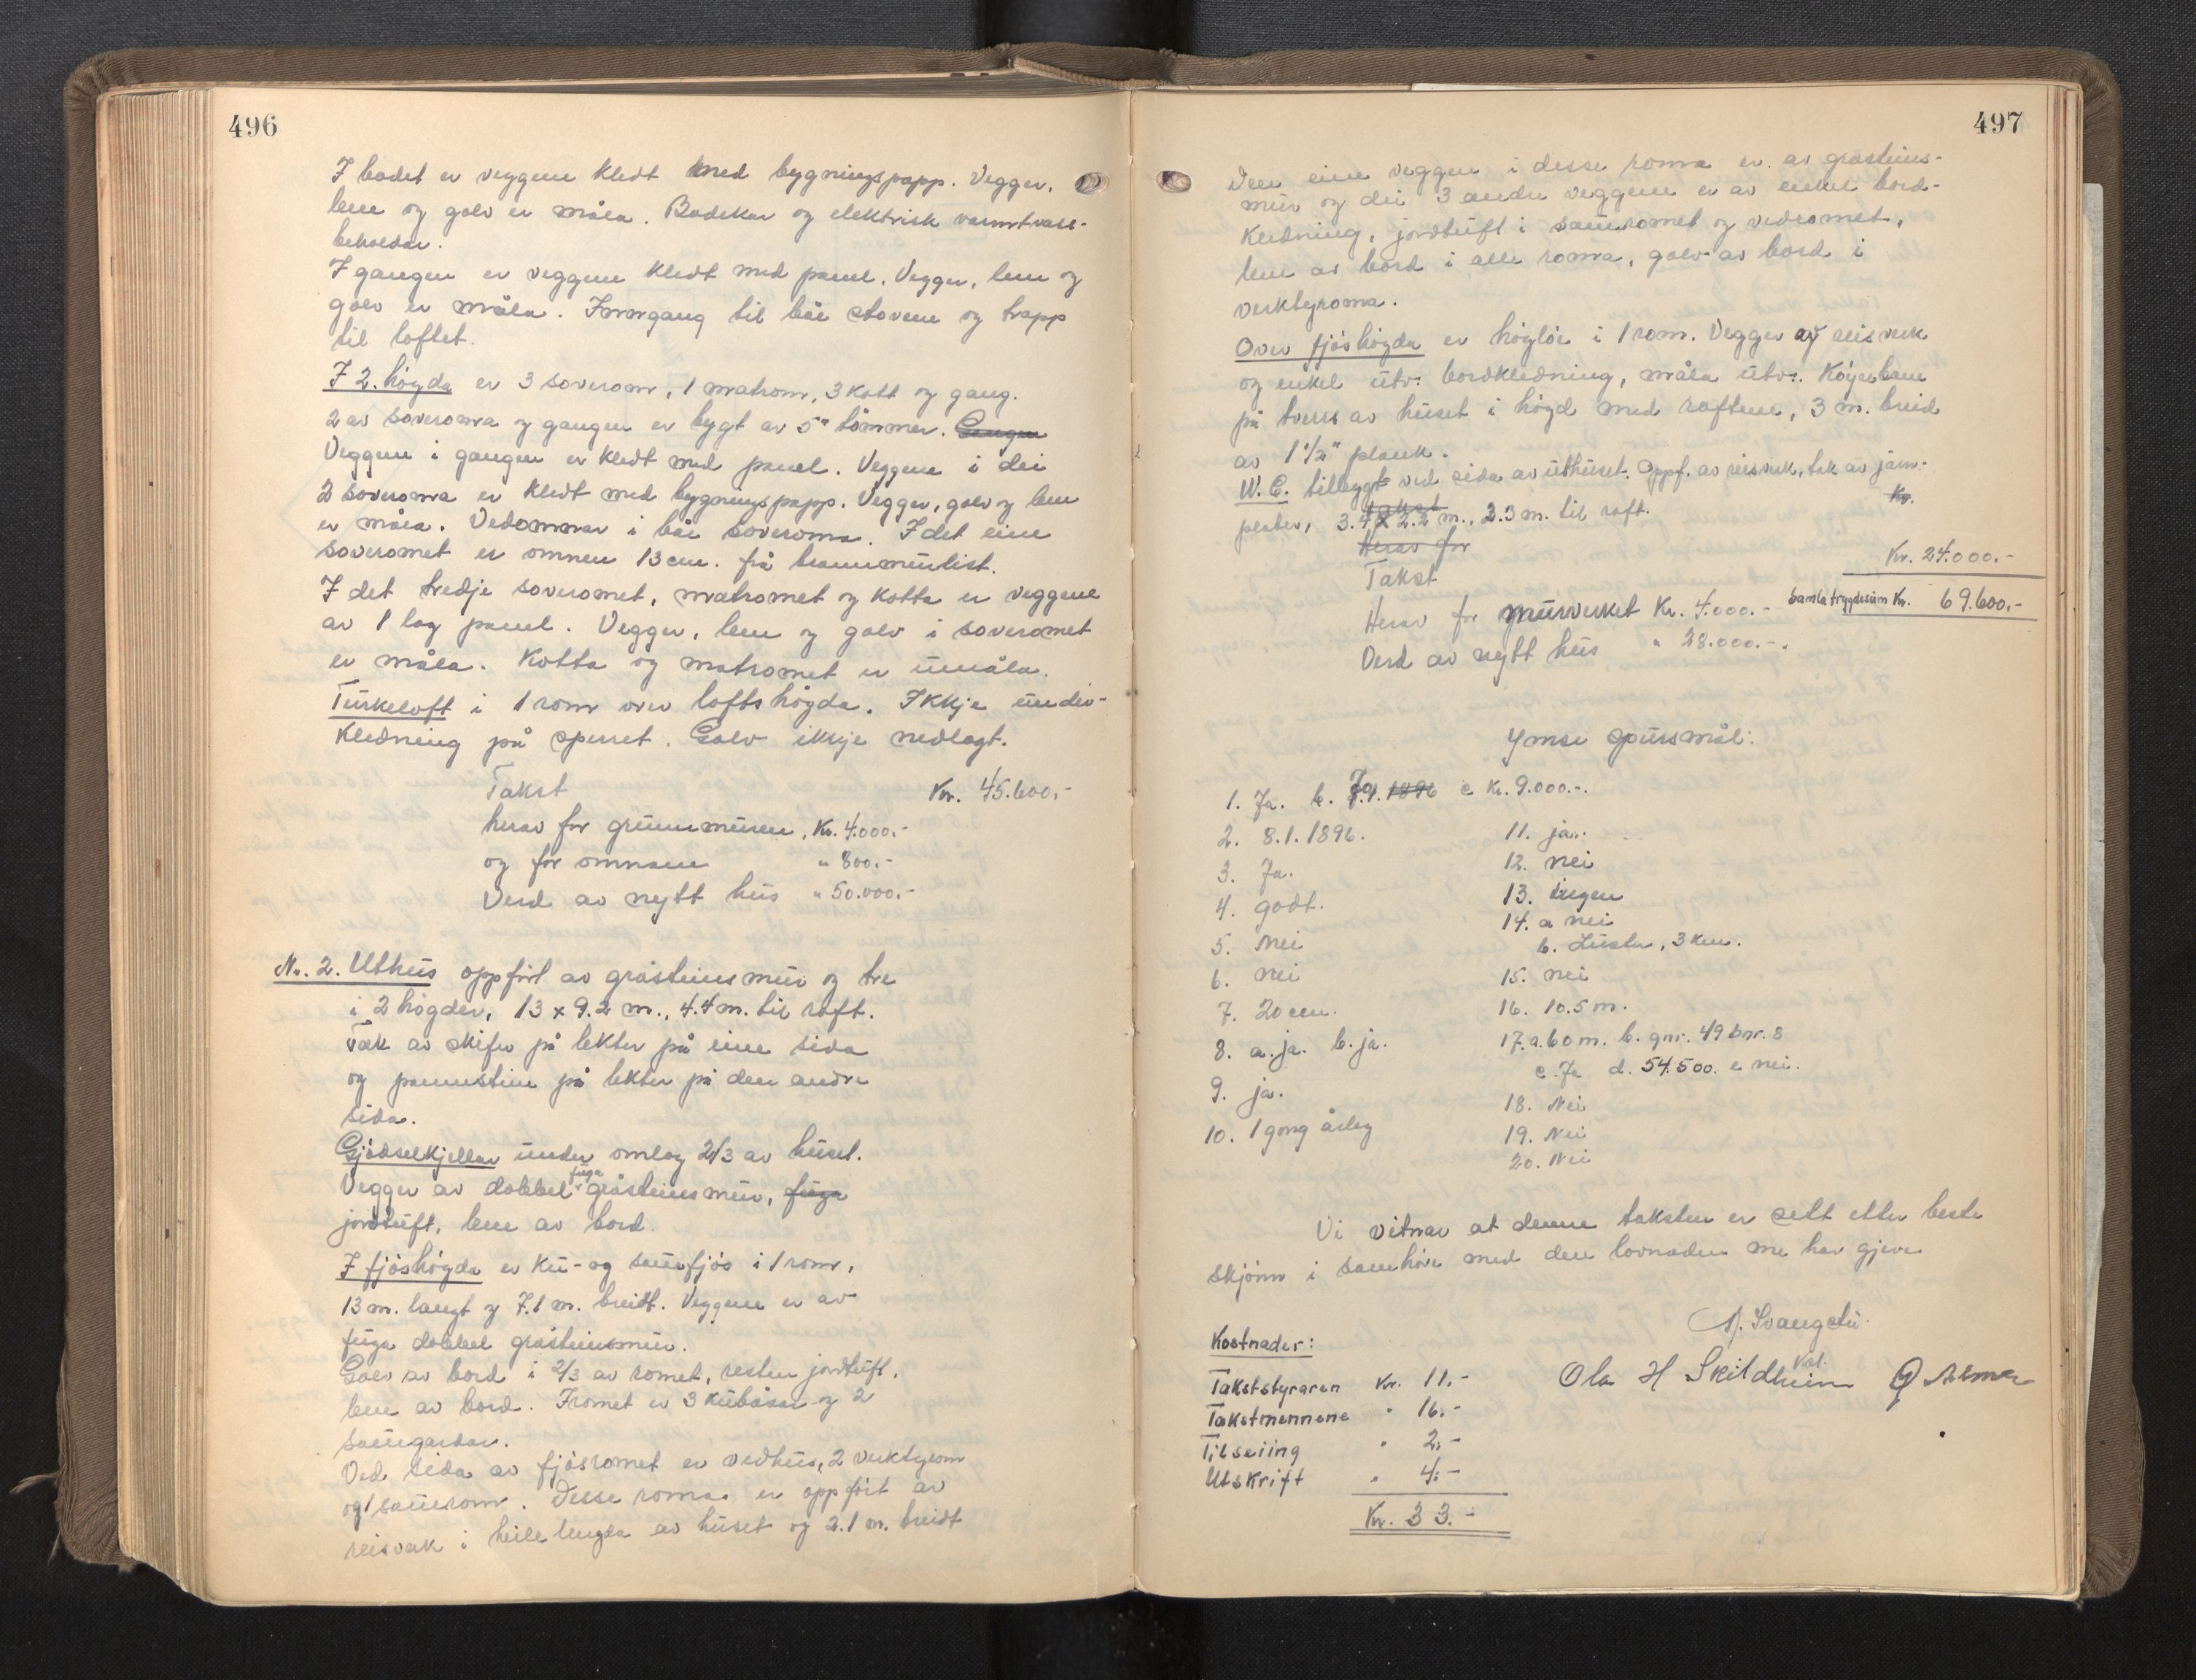 496
I badet er veggene kledt med bygningspapp. Vegger,
lem og golv er måla. Badekar og elektrisk varmtvass-
beholdar.
I gangen er veggene kledt med panel. Vegger, lem og
golv er måla. Inngang til båe stovene og trapp
til loftet.
I 2. högda er 3 soverom, 1 matrom, 3 kott og gang.
2 av soveroma og gangen er bygt av 5" tömmer. Gangen
Veggene i gangen er kledt med panel. Veggene i dei
2 soveroma er kledt med bygningspapp. Vegger, golv og lem
er måla. Vedomnar i båe soveroma. I det eine
soveromet er omnen 13 cm. frå brannmurlist.
I det tredje soveromet, matromet og kotta er veggene
av 1 lag panel. Vegger, lem og golv i soveromet
er måla. Kotta og matromet er umåla.
Turkeloft i 1 rom over loftshögda. Ikkje under-
kledning på sperret. Golv ikkje nedlagt.
Takst Kr. 45.600,-
herav for grunnmuren, Kr. 4.000.-
og for omnane " 800.-
Verd av nytt hus " 50.000.-
Nr. 2. Uthus oppfört av gråsteinsmur og tre
i 2 högder, 13 x 9.2 m., 4.4 m. til raft.
Tak av skifer på lekter på eine sida
og pannestein på lekter på den andre
sida.
Gjödselkjellar under omlag 2/3 av huset.
Vegger av dobbel fuga gråsteinsmur, fuga
jordtuft, lem av bord.
I fjöshögda er ku- og sauefjös i 1 rom,
13 m. langt og 7.1 m. breidt. Veggene er av
fuga dobbel gråsteinsmur.
Golv av bord i 2/3 av romet, resten jordtuft,
lem av bord. I romet er 3 kubåsar og 2
sauegardar.
Ved sida av fjösromet er vedhus, 2 verktyrom
og 1 sauerom. Desse roma er oppfört av
reisverk i heile lengda av huset og 2.1 m. breidt
497
Den eine veggen i desse roma er av gråsteins-
mur og dei 3 andre veggene er av enkel bord-
kledning, jordtuft i sauromet og vedromet,
lem av bord i alle roma, golv av bord i
verktyroma.
Over fjöshögda er höylöe i 1 rom. Vegger av reisverk
og enkel utv. bordkledning, måla utv. Köyrebane
på tvers av huset i högd med raftene, 3 m. breid
av 1 1/2" plank.
W.C. tilbygt ved sida av uthuset. Oppf. av reisverk, tak av jarn-
Takst Kr.
plater, 3.4 x 2.2 m., 2.3 m. til raft.
Herav for
Takst Kr. 24.000.-
Herav for murverket Kr. 4.000.- Samla trygdesum Kr. 69.600,-
Verd av nytt hus " 28.000.-.
Ymse spursmål:
1. Ja. b. Ja 1896 c Kr. 9.000.-.
2. 8.1.1896.
3. Ja.
4. godt.
5. Nei
6. nei
7. 20 cm.
8. a. ja. b. ja.
9. ja.
10. 1 gong årleg
11. ja.
12. nei
13. ingen
14. a nei
b. Luster, 3 km.
15. nei
16. 10.5 m.
17. a. 60 m. b. gnr. 49 bnr. 8
c. Ja d. 54.500. e nei.
18. Nei
19. Nei
20. Nei
Vi vitnar at denne taksten er sett etter beste
skjönn i samhöve med den lovnaden me har gjeve
Ola H Skildheim
Kostnader:
Takststyraren Kr. 11.-
Takstmennene " 16.-
Tilseiing " 2.-
Utskrift " 4.-
Kr. 33.-